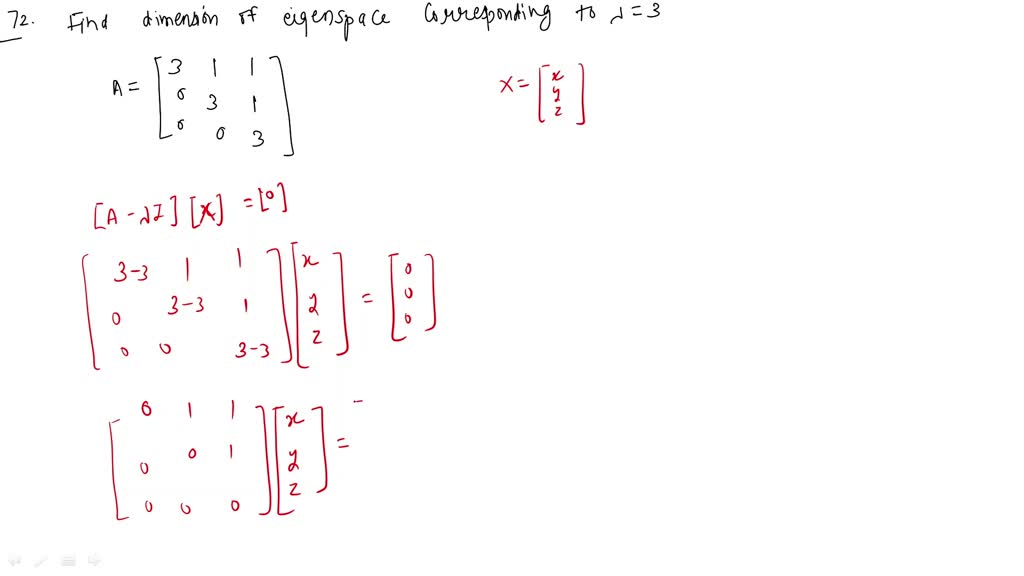 72. Find dimension of eigenspace corresponding to λ = 3
A = [ 3 1 1
0 3 1
0 0 3 ]
X = [ x
y
z ]
[A - λI] [x] = [0]
[ 3-3 1 1
0 3-3 1
0 0 3-3 ] [ x
y
z ] = [ 0
0
0 ]
[ 0 1 1
0 0 1
0 0 0 ] [ x
y
z ] =